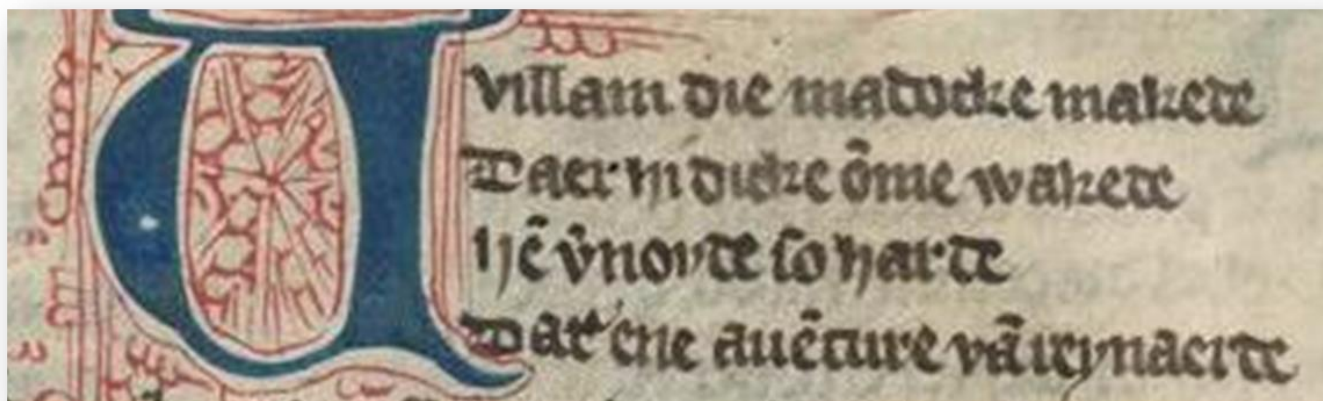 Uvillam die madocke makede
Daer hi dicke ōme wakede
hē v̄noyde so harde
Dat ene auēture vā reynaerde